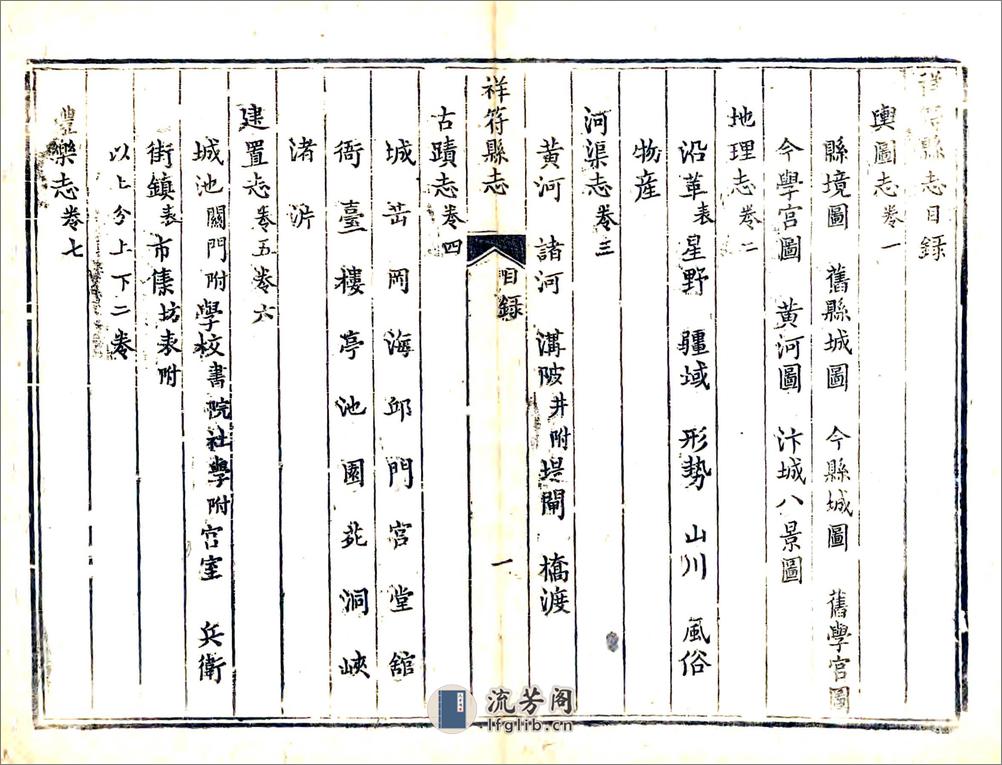 祥符縣志目錄
輿圖志卷一
縣境圖 舊縣城圖 今縣城圖 舊學宮圖
今學宮圖 黄河圖 汴城八景圖
地理志卷二
沿革表 星野 疆域 形勢 山川 風俗
物産
河渠志卷三
黄河 諸河 溝陂井附 堤閘 橋渡
祥符縣志 目録 一
古蹟志卷四
城 岡 海 邱 門 宫 堂 舘
衙 臺 樓 亭 池 園 苑 洞 峽
渚 沜
建置志卷五卷六
城池關門附 學校書院社學附 官室 兵衛
街鎮表 市集坊表附
以上分上下二卷
豊樂志卷七
流芳阁
lfglib.cn